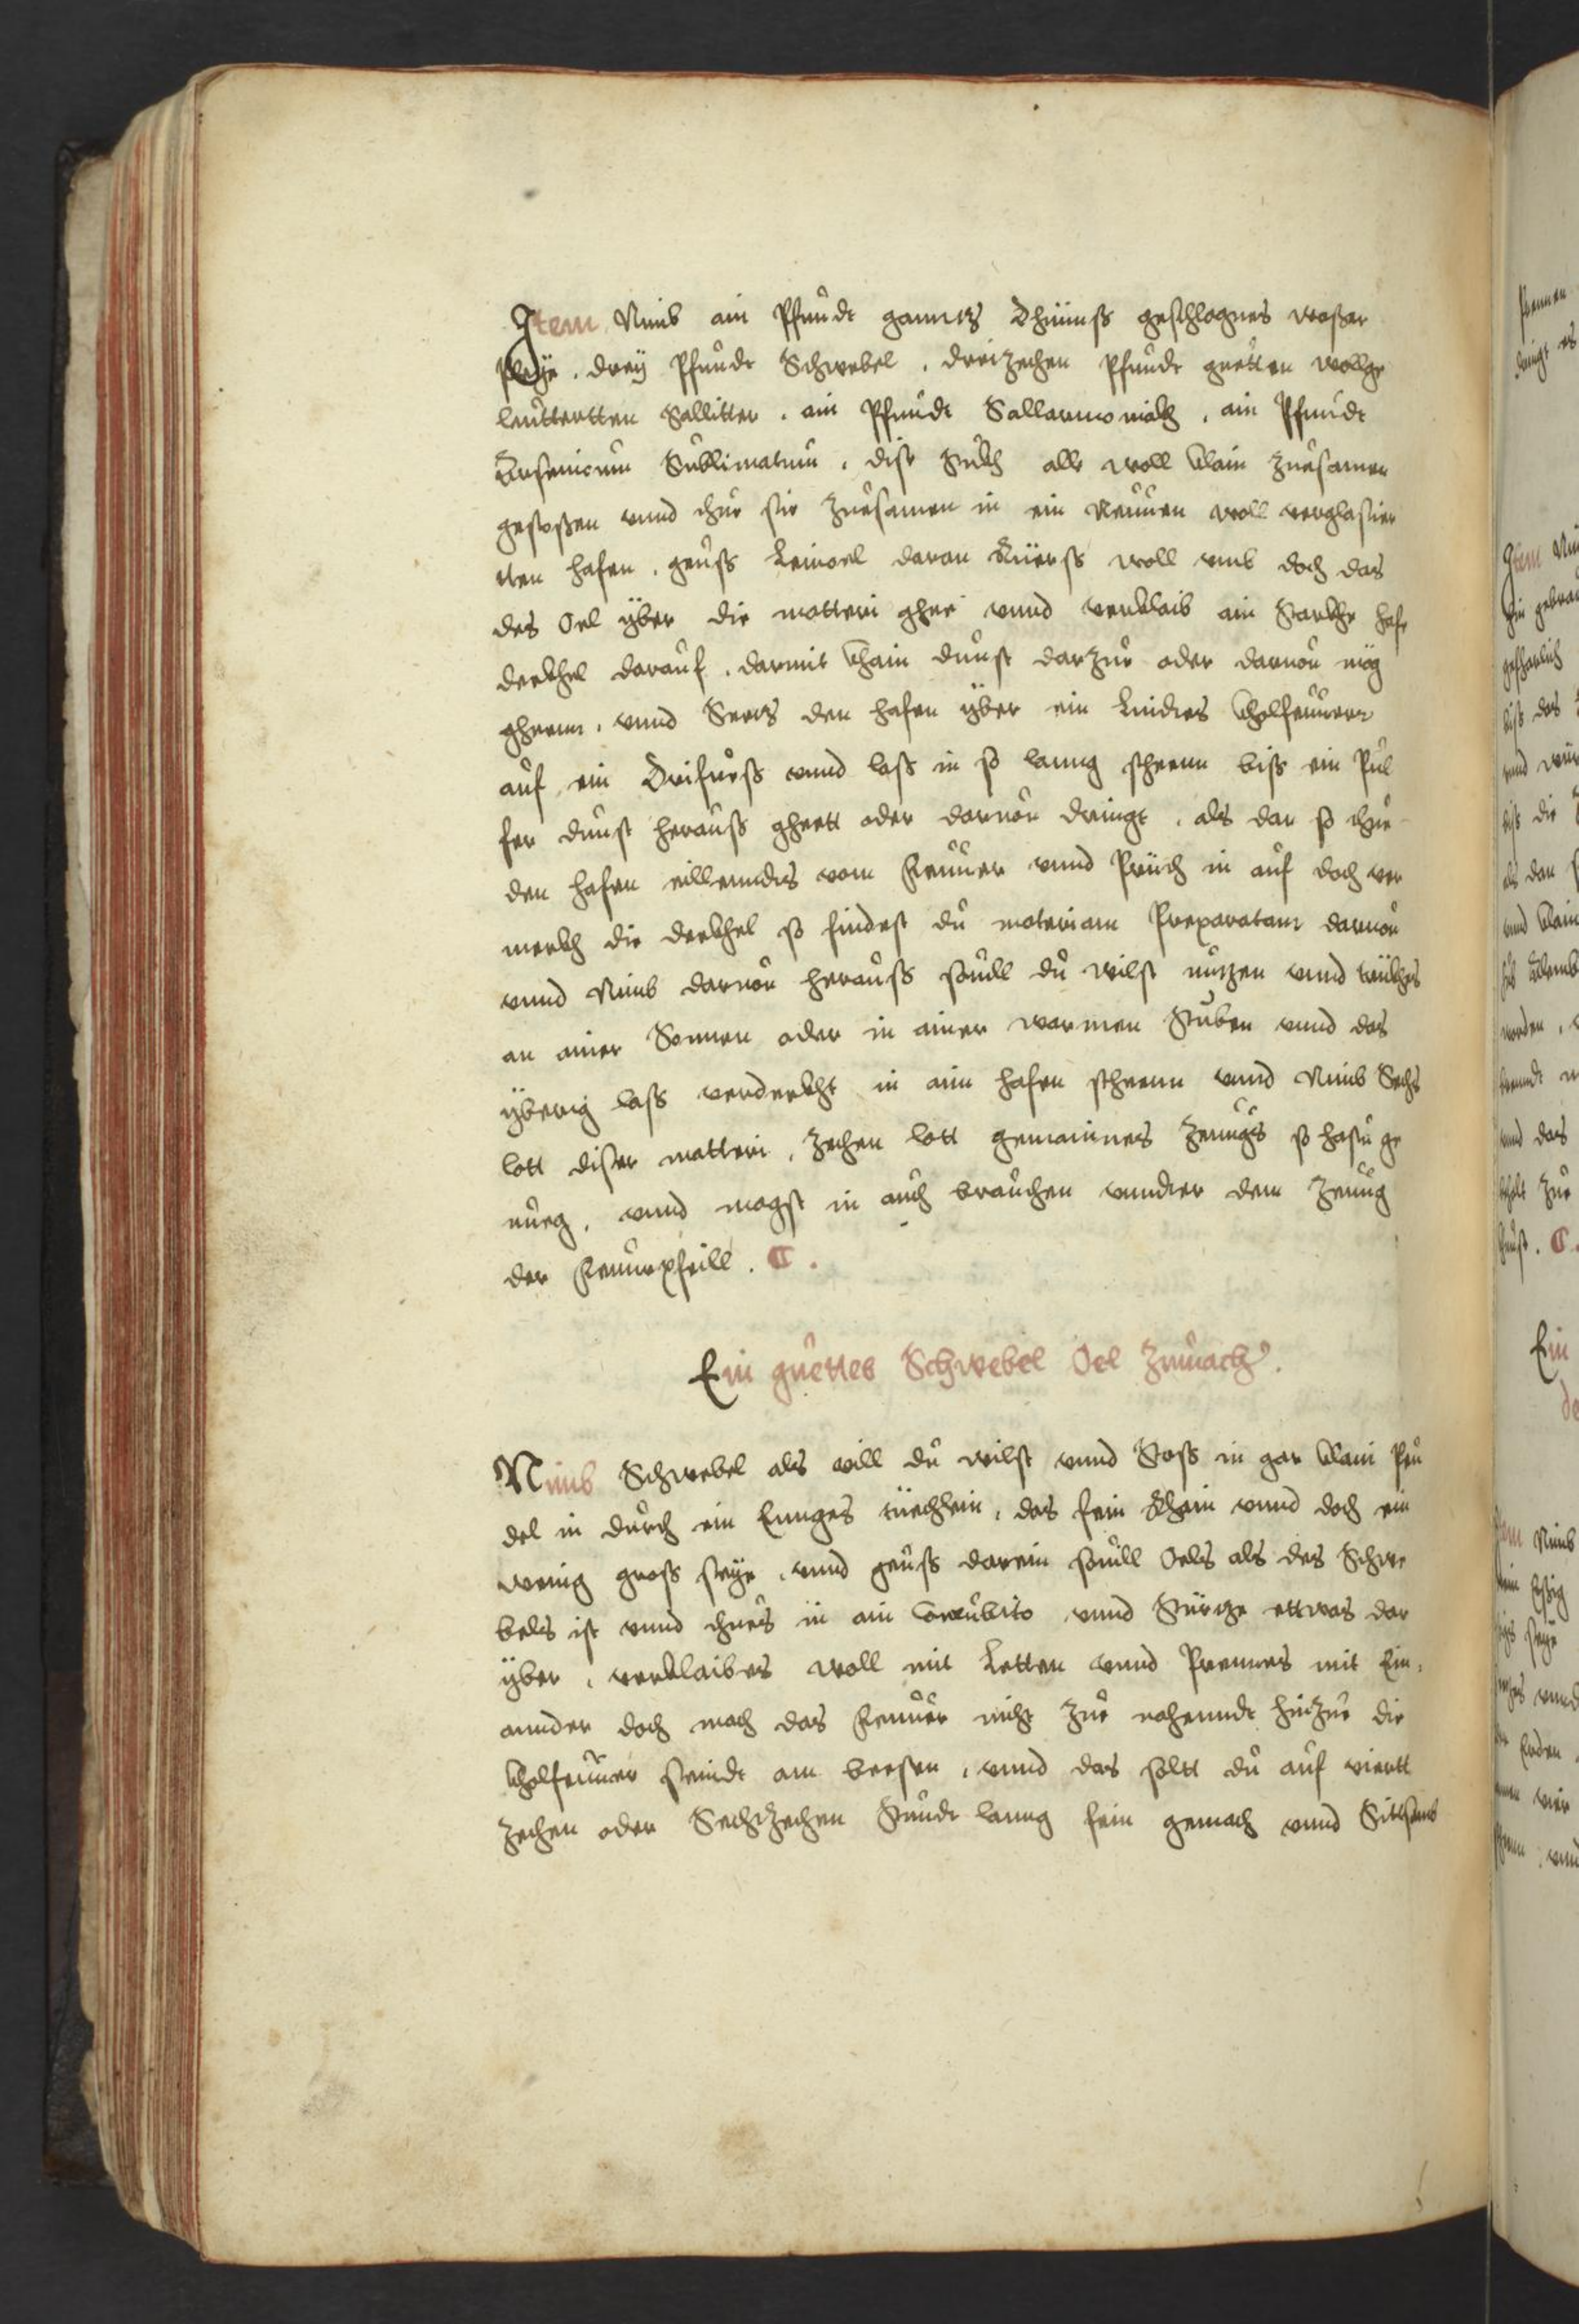 Item Nimb ain Pfundt ganntz Dhünns geschlagnes waßer
pleÿe . dreÿ Pfundt Schwebel . dreizechen Pfundt guetten wollge
leuttertten Sallitter . ain Pfundt Sallarmoniakh . ain Pfundt
Arsenicum Sublimatum . dise stukh alle woll klain zuesamen
gestoßen vnnd thue sie zuesamen in ein Neuuen woll verglasier
tten hafen . geuss Leinoel daran Rüerss woll vmb doch das
des Oel ÿber die matteri ghee vnnd verklaib ain Starkhe hafe
dekhel darauf . darmit khain dunst darzue oder daruon mög
gheenn . vnnd Setz den hafen ÿber ein Lindies kholfeuuerr
auf ein Drifuess vnnd lass in so lanng stheenn biss ein Pul
fer dunst herauss gheett oder daruon dringt . als dan so thue
den hafen eillenndts vom Feuuer vnnd Prich in auf doch ver
merkh die dekhel so findest du materiam Preparatam daruon
vnnd Nimb daruon herauss souill du wilst nutzen vnnd trükhes
an ainer Sonnen oder in ainer warmen Stuben vnnd das
ÿberig lass verdekht in aim hafen stheenn vnnd Nimb Sechs
lott diser matteri . zechen lott gemaines Zeuugs so hastu ge
nueg . vnnd magst in auch brauchen vnndter dem Zeuug
der Feuurpfeill . C .
Ein guettes Schwebel Oel zumach .
Nimb Schwebel als vill du wilst vnnd Stoss in gar klain Peu
del in durch ein Ennges tüechlein . das fein Rhain vnnd doch ein
wenig gross seÿe . vnnd geuss darein souill Oels als des Schwe
bels ist vnnd thues in ain Cucubito vnnd Stürtze ettwas dar
ÿber . verklaibes woll mit Letten vnnd Prennes mit Ein .
annder doch mach das Feuuer nicht zue nahenndt hinzue die
kholfeuuer seindt am besten . vnnd das soltt du auf viertt
zechen oder Sechtzechen Stundt lanng fein gemach vnnd Sittsamb